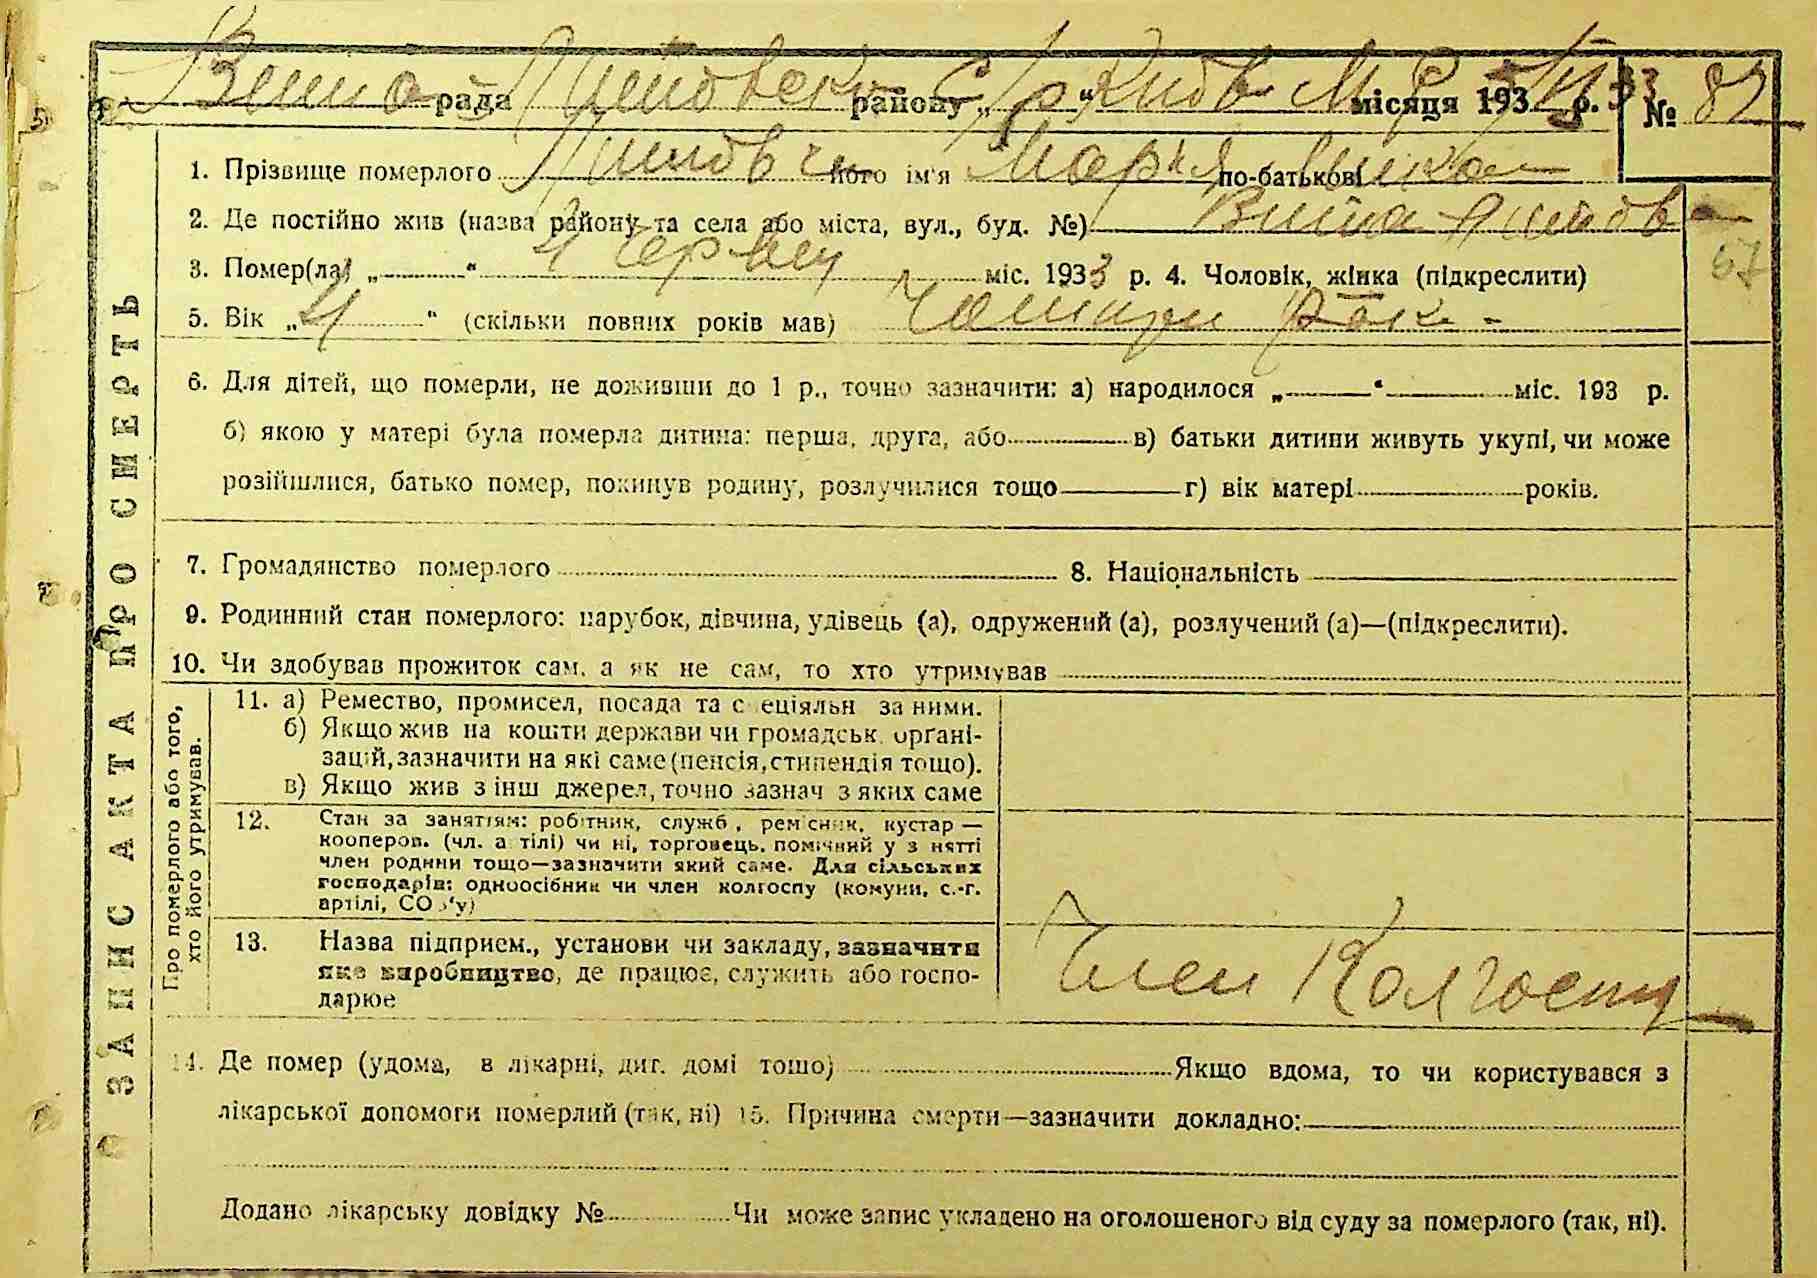 рада району „ “ місяця 193 р. 33 № 82
1. Прізвище померлого його ім'я Марія по-батькові
2. Де постійно жив (назва району та села або міста, вул., буд. №)
3. Помер(ла) „ “ 4 червця міс. 1933 р. 4. Чоловік, жінка (підкреслити)
57
5. Вік „4“ (скільки повних років мав) Чотири роки -
6. Для дітей, що померли, не доживши до 1 р., точно зазначити: а) народилося „ “ міс. 193 р.
б) якою у матері була померла дитина: перша, друга, або в) батьки дитини живуть укупі, чи може
розійшлися, батько помер, покинув родину, розлучилися тощо г) вік матері років.
7. Громадянство померлого 8. Національність
9. Родинний стан померлого: парубок, дівчина, удівець (а), одружений (а), розлучений (а)—(підкреслити).
10. Чи здобував прожиток сам, а як не сам, то хто утримував
11. а) Ремество, промисел, посада та с еціяльн за ними.
б) Якщо жив на кошти держави чи громадськ. органі-
зацій, зазначити на які саме (пенсія, стипендія тощо).
в) Якщо жив з інш джерел, точно зазнач з яких саме
12. Стан за заняттям: робітник, служб, ремісник, кустар —
кооперов. (чл. а тілі) чи ні, торговець, помічний у з нятті
член родини тощо—зазначити який саме. Для сільських
господарів: одноосібник чи член колгоспу (комуни, с.-г.
артілі, СО 'у)
13. Назва підприєм., установи чи закладу, зазначити
яке виробництво, де працює, служить або госпо-
дарює
Член Колгоспу
14. Де помер (удома, в лікарні, дит. домі тошо) Якщо вдома, то чи користувався з
лікарської допомоги померлий (так, ні) 15. Причина смерти—зазначити докладно:
Додано лікарську довідку № Чи може запис укладено на оголошеного від суду за померлого (так, ні).
ЗАПИС АКТА ПРО СМЕРТЬ
Про померлого або того,
хто його утримував.